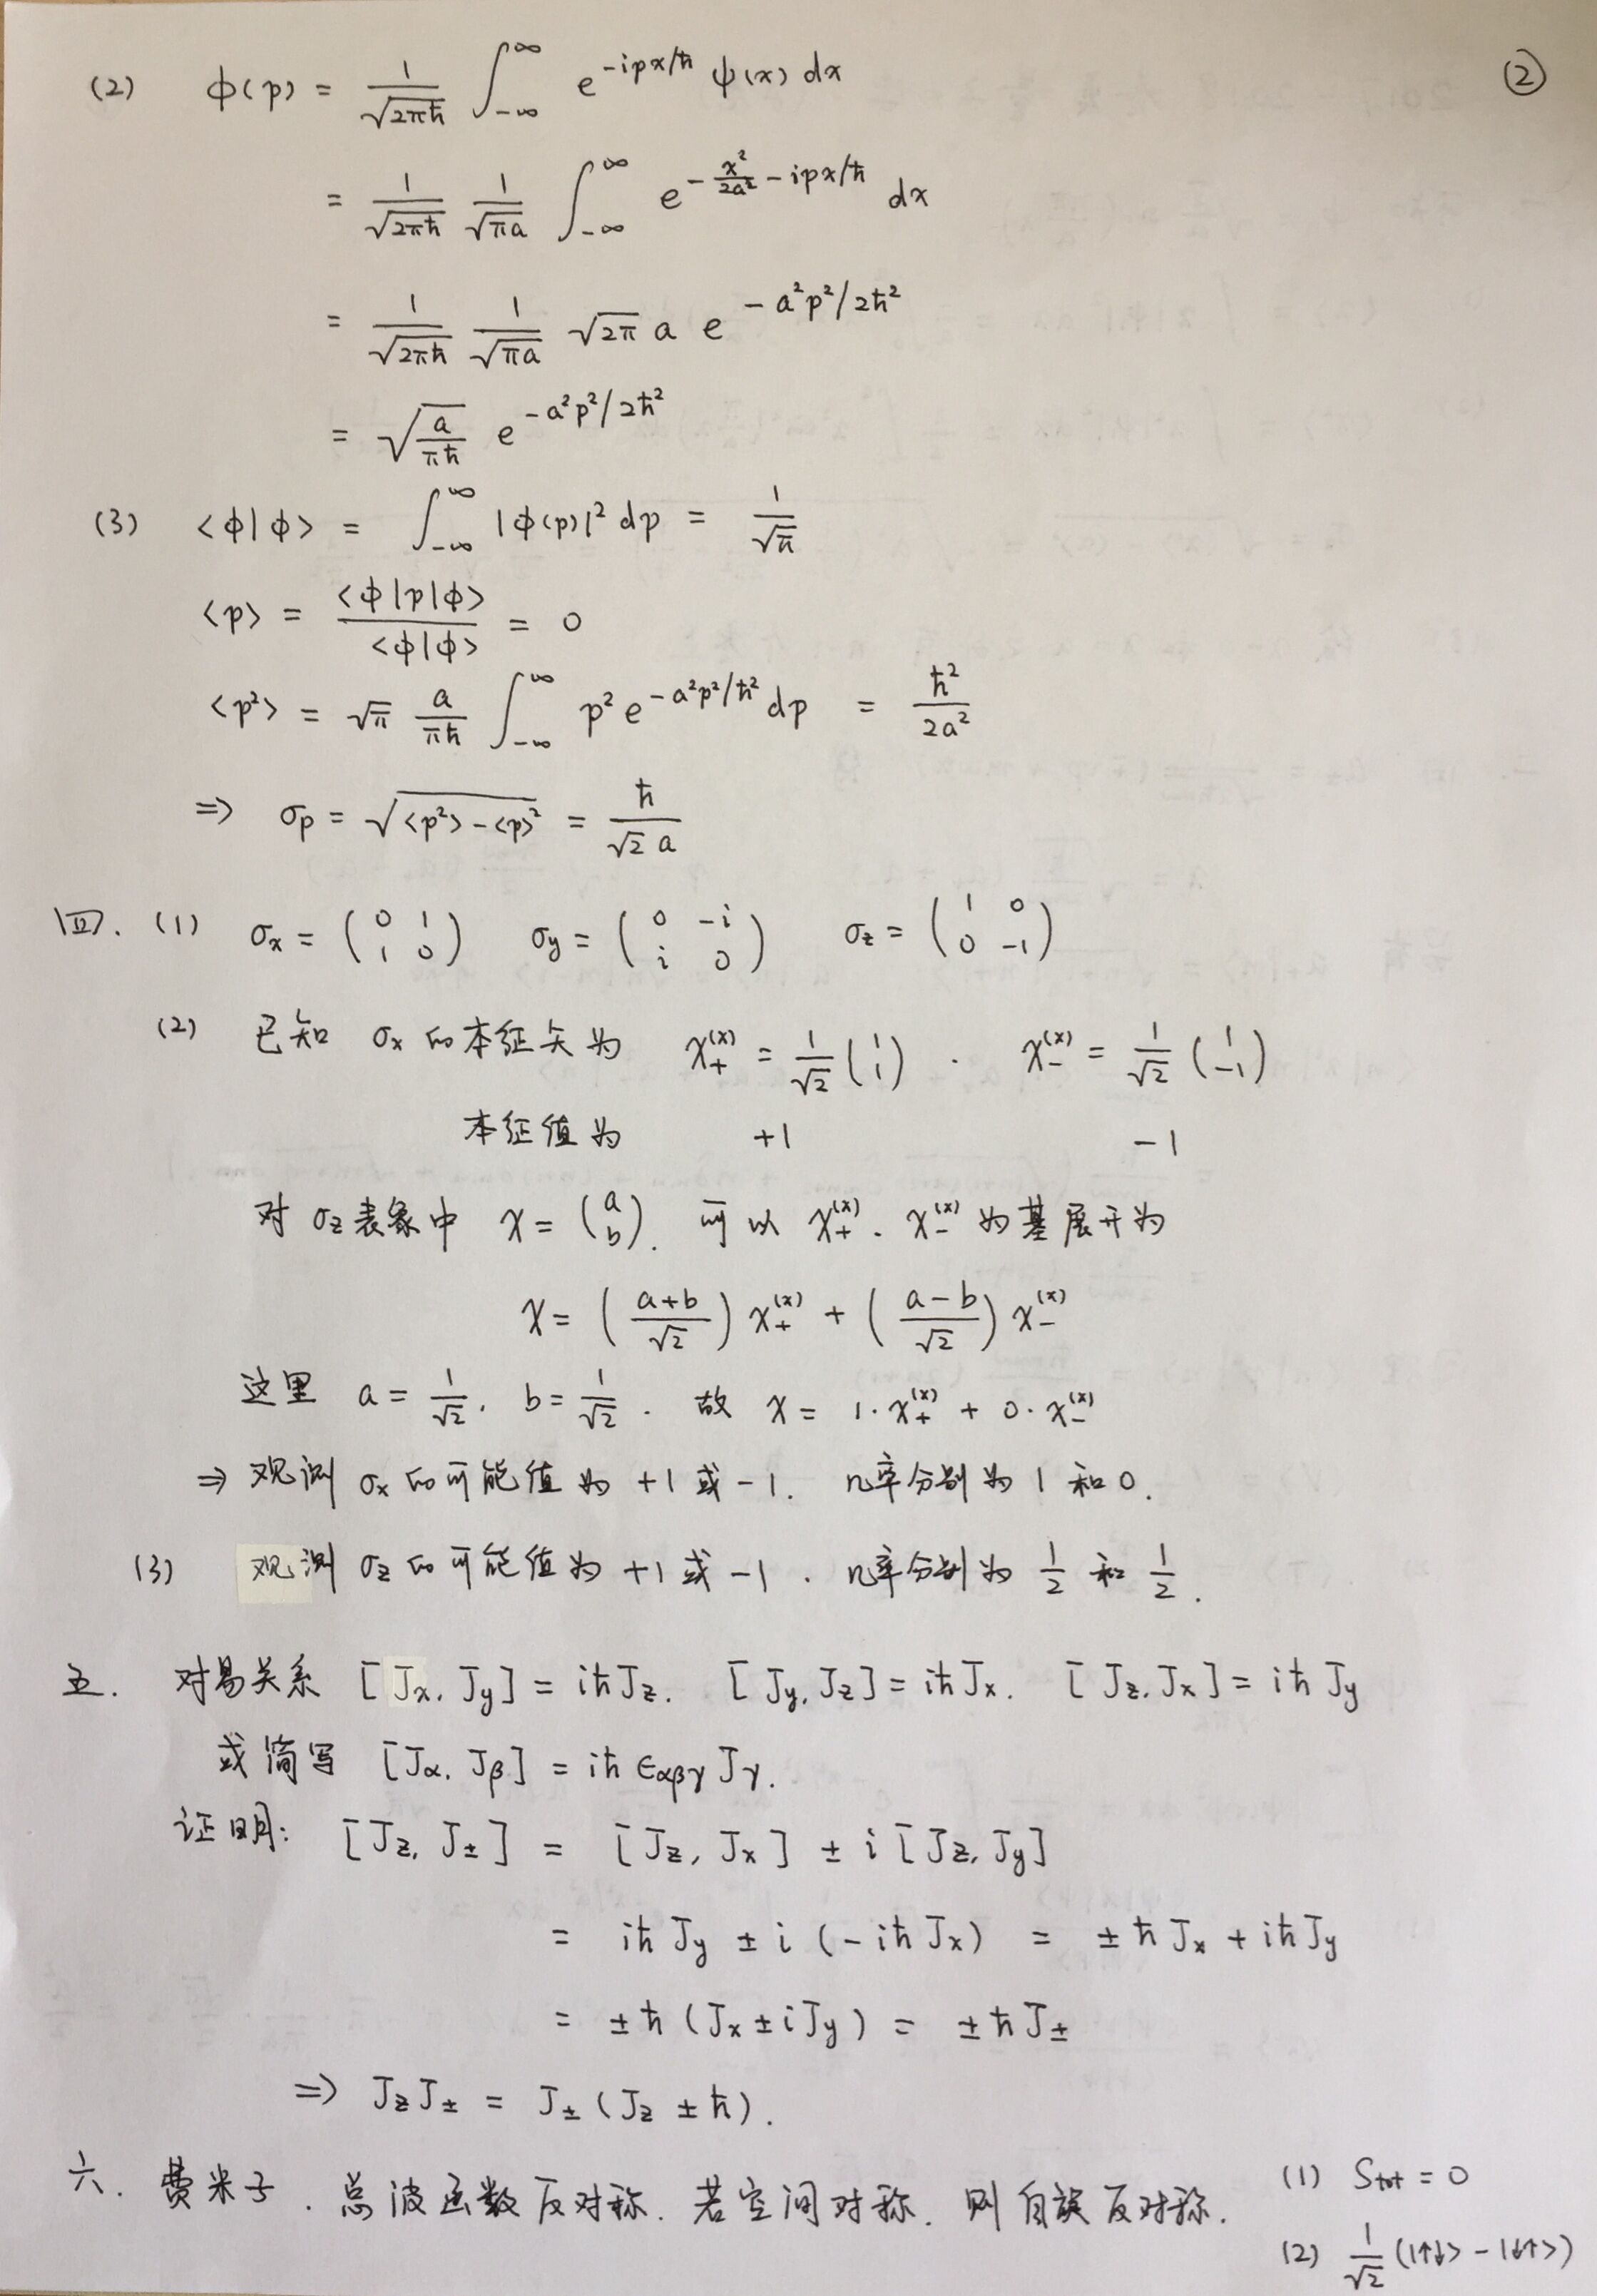 ②
(2) ϕ(p) = 1/√(2πħ) ∫_{-∞}^{∞} e^{-ipx/ħ} ψ(x) dx
= 1/√(2πħ) 1/√(πa) ∫_{-∞}^{∞} e^{-x²/2a² - ipx/ħ} dx
= 1/√(2πħ) 1/√(πa) √(2π) a e^{-a²p²/2ħ²}
= √(a/πħ) e^{-a²p²/2ħ²}
(3) <ϕ|ϕ> = ∫_{-∞}^{∞} |ϕ(p)|² dp = 1/√π
<p> = <ϕ|p|ϕ>/<ϕ|ϕ> = 0
<p²> = √π a/πħ ∫_{-∞}^{∞} p² e^{-a²p²/ħ²} dp = ħ²/2a²
⇒ σp = √(<p²> - <p>²) = ħ/(√2 a)
四. (1) σx = (0 1; 1 0) σy = (0 -i; i 0) σz = (1 0; 0 -1)
(2) 已知 σx的本征矢为 χ₊^{(x)} = 1/√2 (1; 1). χ₋^{(x)} = 1/√2 (1; -1)
本征值为 +1 -1
对σz表象中 χ = (a; b). 可以 χ₊^{(x)}. χ₋^{(x)} 为基展开为
χ = ((a+b)/√2) χ₊^{(x)} + ((a-b)/√2) χ₋^{(x)}
这里 a = 1/√2. b = 1/√2. 故 χ = 1·χ₊^{(x)} + 0·χ₋^{(x)}
⇒ 观测 σx的可能值为 +1 或 -1. 几率分别为 1 和 0.
(3) 观测 σz的可能值为 +1 或 -1. 几率分别为 1/2 和 1/2.
五. 对易关系 [Jx, Jy] = iħJz. [Jy, Jz] = iħJx. [Jz, Jx] = iħJy
或简写 [Jα, Jβ] = iħ ϵαβγ Jγ.
证明: [Jz, J±] = [Jz, Jx] ± i[Jz, Jy]
= iħJy ± i(-iħJx) = ±ħJx + iħJy
= ±ħ(Jx ± iJy) = ±ħJ±
⇒ JzJ± = J±(Jz ± ħ).
六. 费米子. 总波函数反对称. 若空间对称. 则自旋反对称.
(1) Stot = 0
(2) 1/√2 (|↑↓> - |↓↑>)